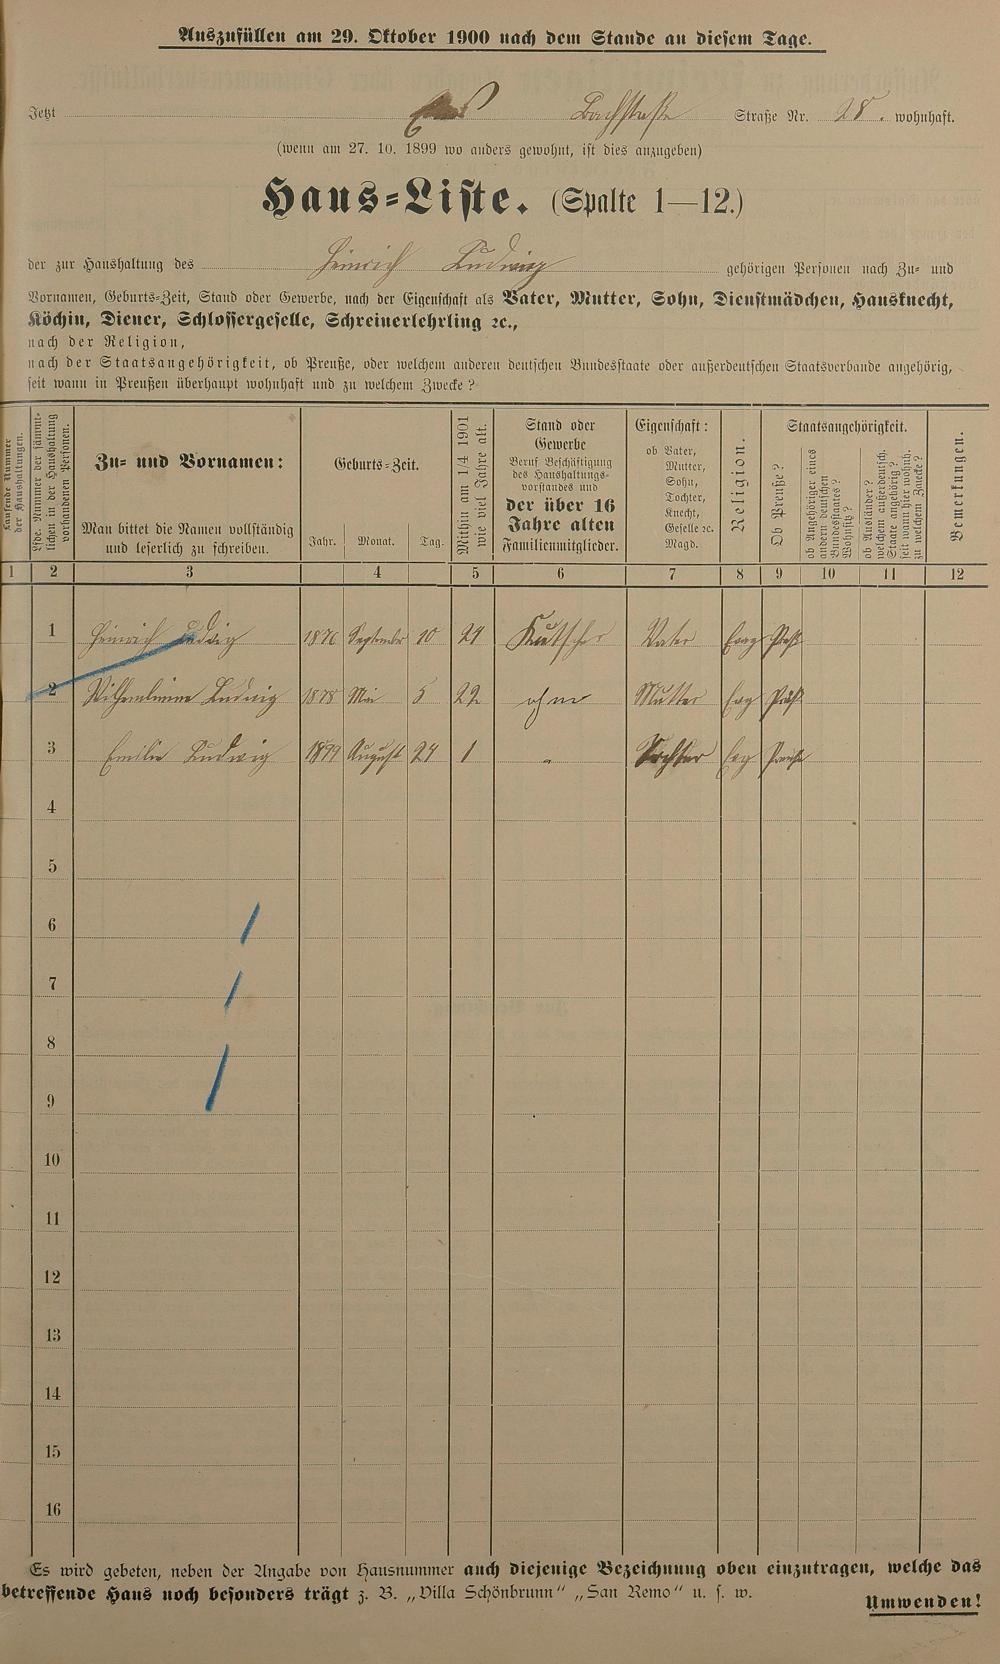 Auszufüllen am 29. Oktober 1900 nach dem Stande an diesem Tage.
Jetzt Bachstraße Straße Nr. 28. wohnhaft.
(wenn am 27. 10. 1899 wo anders gewohnt, ist dies anzugeben)
Haus=Liste. (Spalte 1—12.)
der zur Haushaltung des Heinrich Ludwig gehörigen Personen nach Zu= und
Vornamen, Geburts=Zeit, Stand oder Gewerbe, nach der Eigenschaft als Vater, Mutter, Sohn, Dienstmädchen, Hausknecht,
Köchin, Diener, Schlossergeselle, Schreinerlehrling ꝛc.,
nach der Religion,
nach der Staatsangehörigkeit, ob Preuße, oder welchem anderen deutschen Bundesstaate oder außerdeutschen Staatsverbande angehörig,
seit wann in Preußen überhaupt wohnhaft und zu welchem Zwecke?
Laufende Nummer
der Haushaltungen.
Lfde. Nummer der sämmt=
lichen in der Haushaltung
vorhandenen Personen.
Zu= und Vornamen:
Man bittet die Namen vollständig
und leserlich zu schreiben.
Geburts=Zeit.
Jahr. Monat. Tag.
Mithin am 1/4 1901
wie viel Jahre alt.
Stand oder
Gewerbe
Beruf Beschäftigung
des Haushaltungs=
vorstandes und
der über 16
Jahre alten
Familienmitglieder.
Eigenschaft:
ob Vater,
Mutter,
Sohn,
Tochter,
Knecht,
Geselle ꝛc.
Magd.
Religion.
Staatsangehörigkeit.
Ob Preuße?
ob Angehöriger eines
andern deutschen
Bundesstaates?
Wohnsitz?
ob Ausländer?
welchem außerdeutsch.
Staate angehörig?
seit wann hier wohnh.
zu welchem Zwecke?
Bemerkungen.
1 2 3 4 5 6 7 8 9 10 11 12
1 Heinrich Ludwig 1876 September 10 24 Kutscher Vater Evg Preuß
2 Wilhelmine Ludwig 1878 Mai 5 22 ohne Mutter Evg Preuß
3 Emilie Ludwig 1899 August 24 1 " Tochter Evg Preuße
4
5
6
7
8
9
10
11
12
13
14
15
16
Es wird gebeten, neben der Angabe von Hausnummer auch diejenige Bezeichnung oben einzutragen, welche das
betreffende Haus noch besonders trägt z. B. „Villa Schönbrunn" „San Remo" u. s. w.
Umwenden!